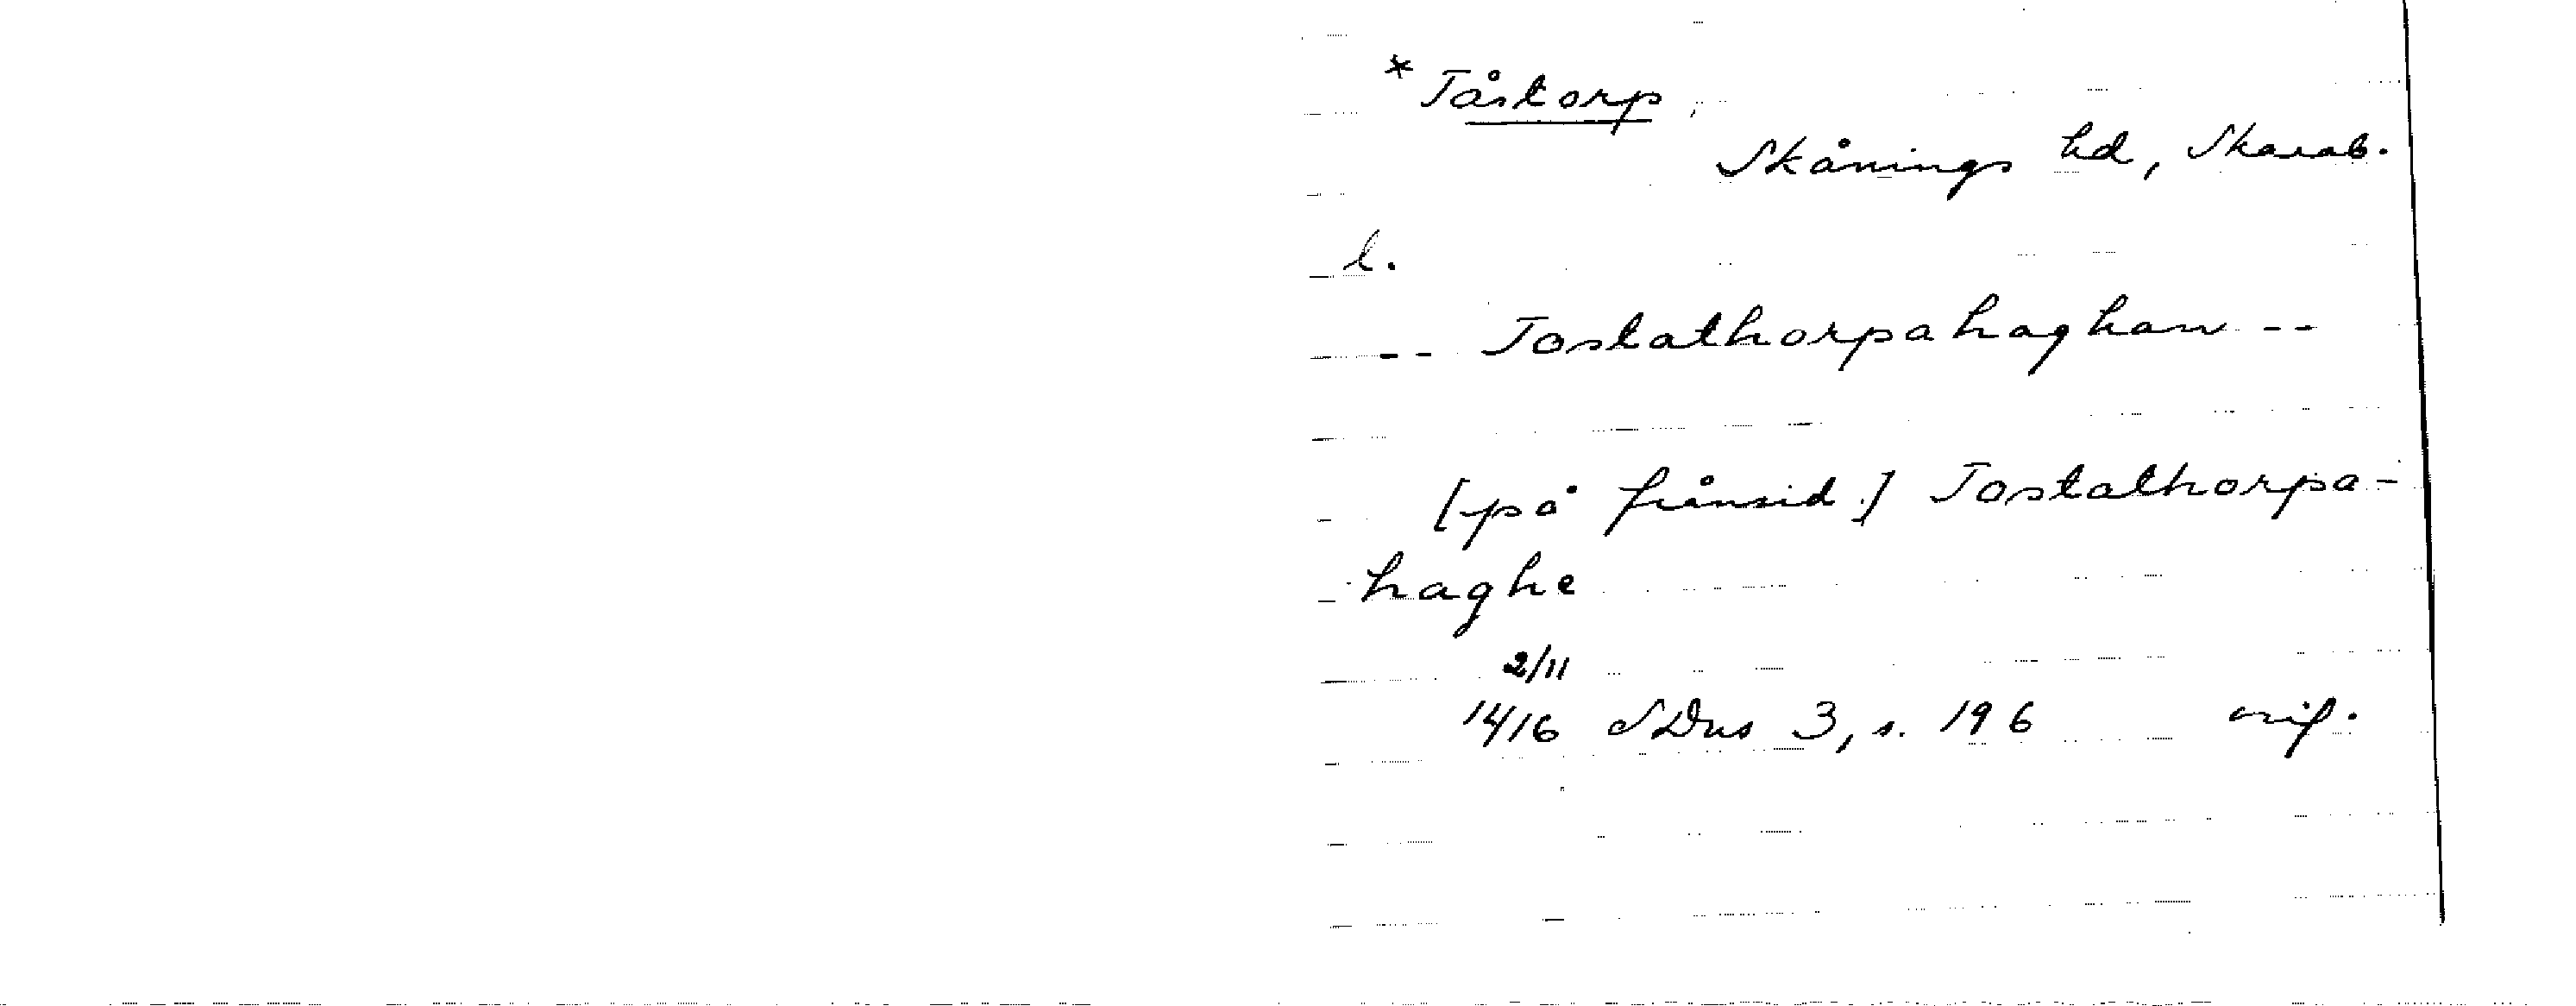 * Tåstorp,
Skånings hd, Skarab.
l.
-- Tostathorpahaghan --
[på frånsid.] Tostathorpa-
haghe
2/11
1416 SDns 3, s. 196 orig.